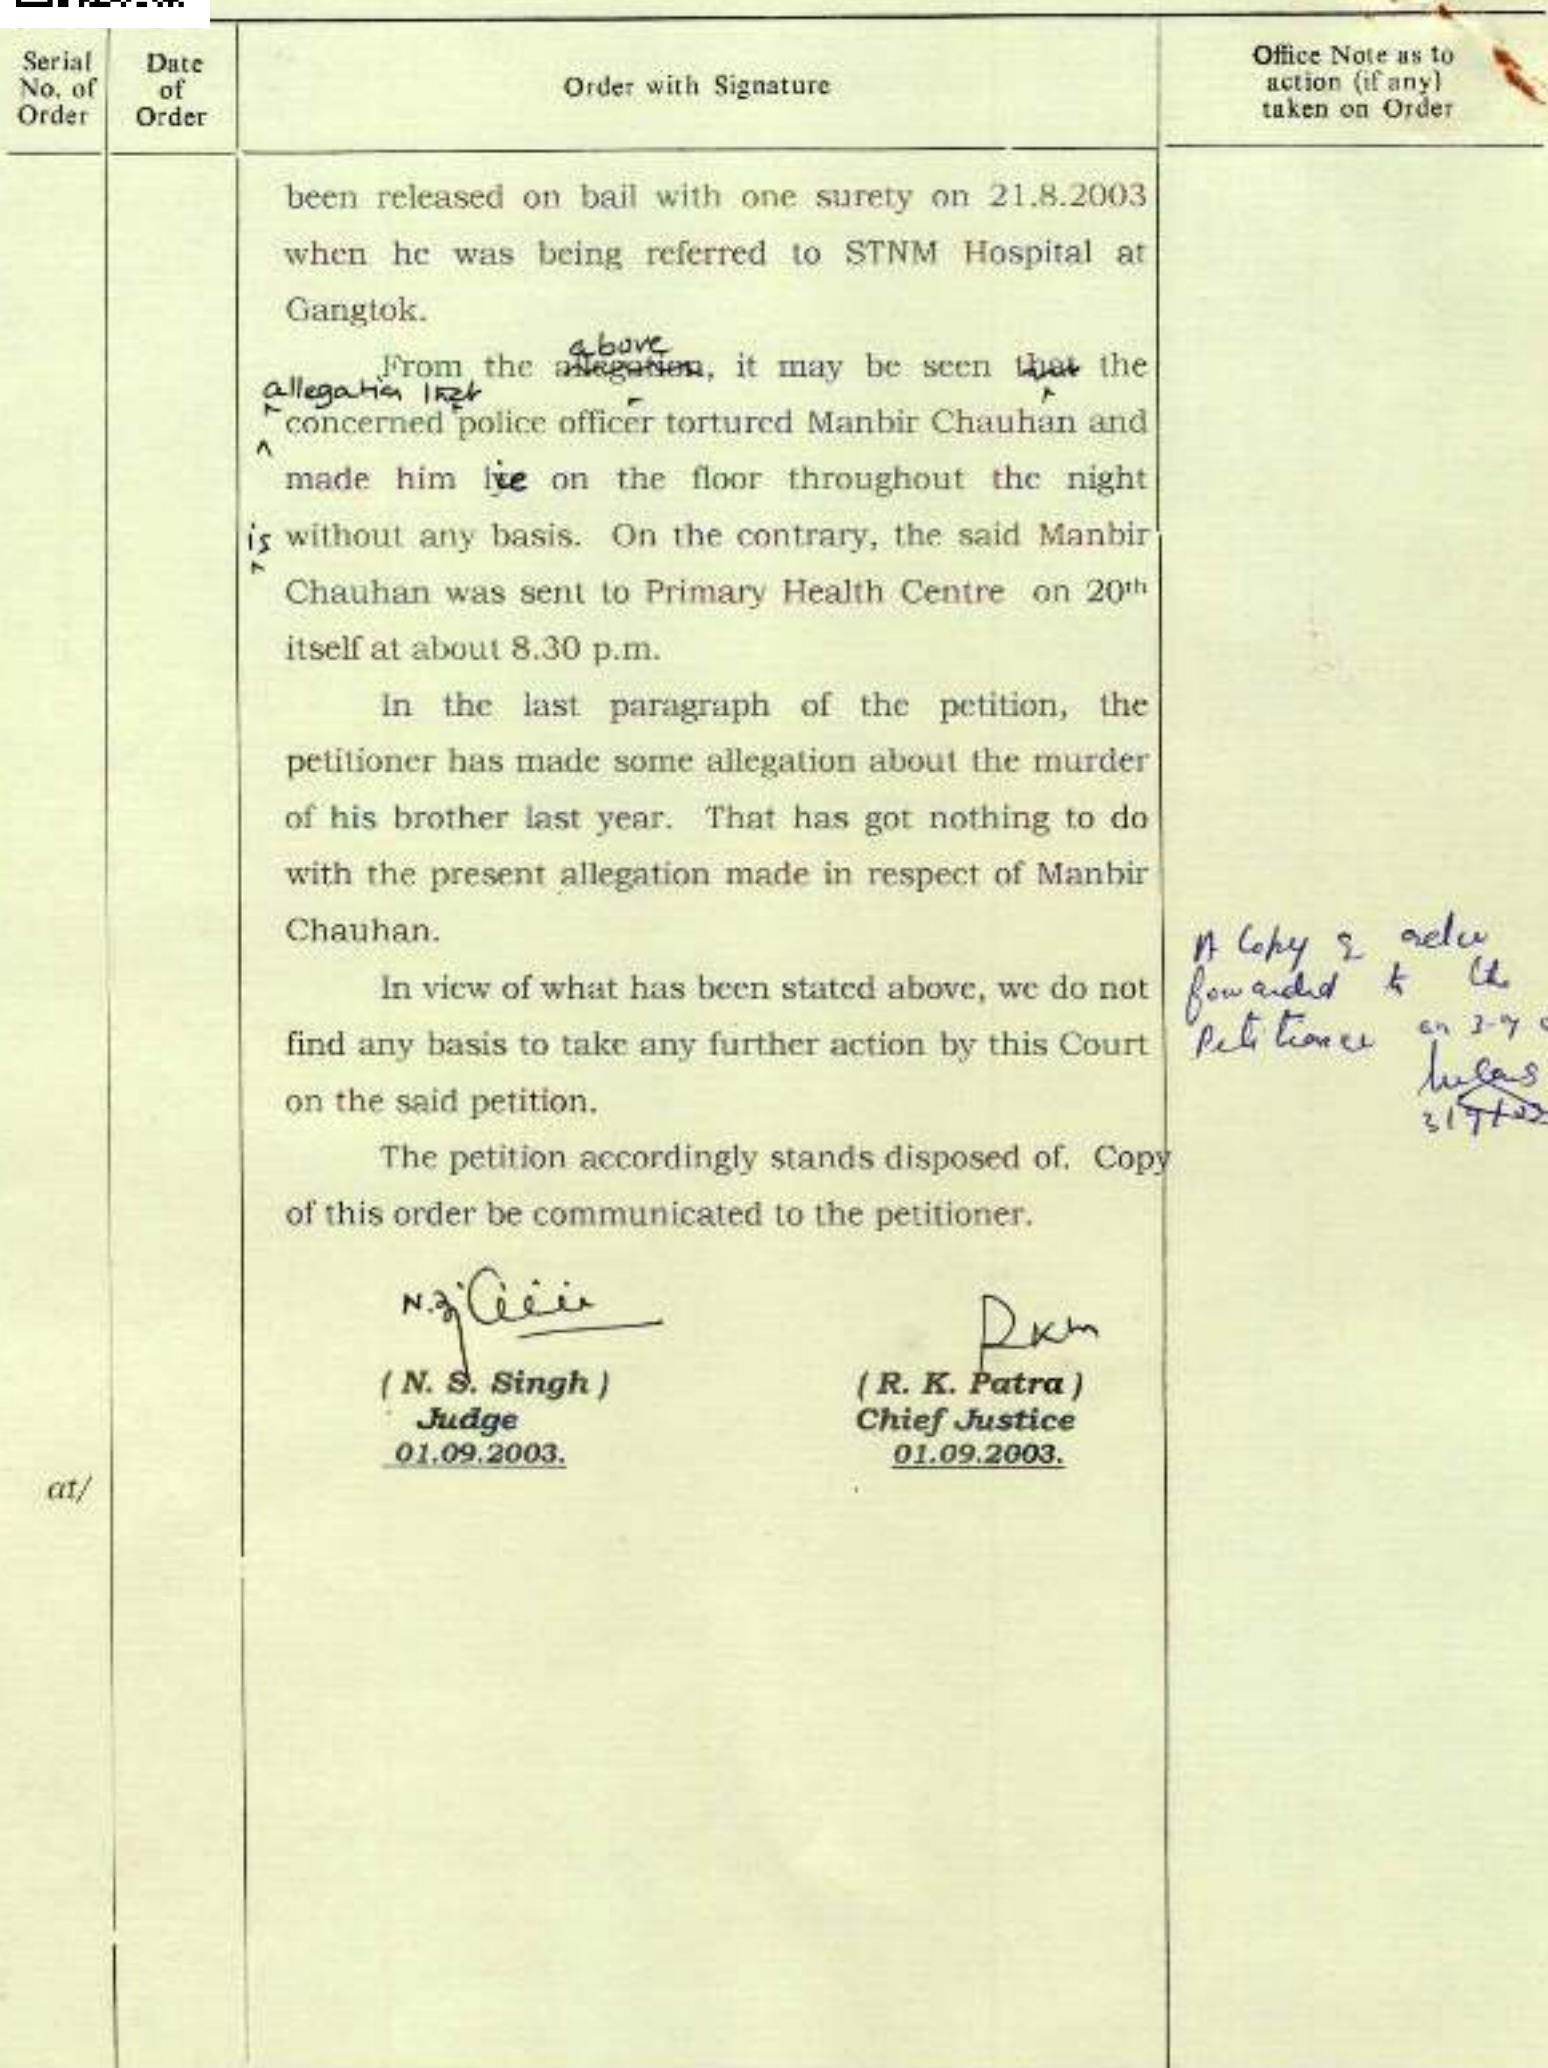 Serial No. of Order
Date of Order
Order with Signature
Office Note as to action (if any) taken on Order
been released on bail with one surety on 21.8.2003
when he was being referred to STNM Hospital at
Gangtok.
above
From the allegation, it may be seen that the
allegation that
concerned police officer tortured Manbir Chauhan and
made him lie on the floor throughout the night
is without any basis. On the contrary, the said Manbir
Chauhan was sent to Primary Health Centre on 20th
itself at about 8.30 p.m.
In the last paragraph of the petition, the
petitioner has made some allegation about the murder
of his brother last year. That has got nothing to do
with the present allegation made in respect of Manbir
Chauhan.
In view of what has been stated above, we do not
find any basis to take any further action by this Court
on the said petition.
The petition accordingly stands disposed of. Copy
of this order be communicated to the petitioner.
A Copy of order
forwarded to the
Petitioner on
(N. S. Singh)
Judge
01.09.2003.
(R. K. Patra)
Chief Justice
01.09.2003.
at/